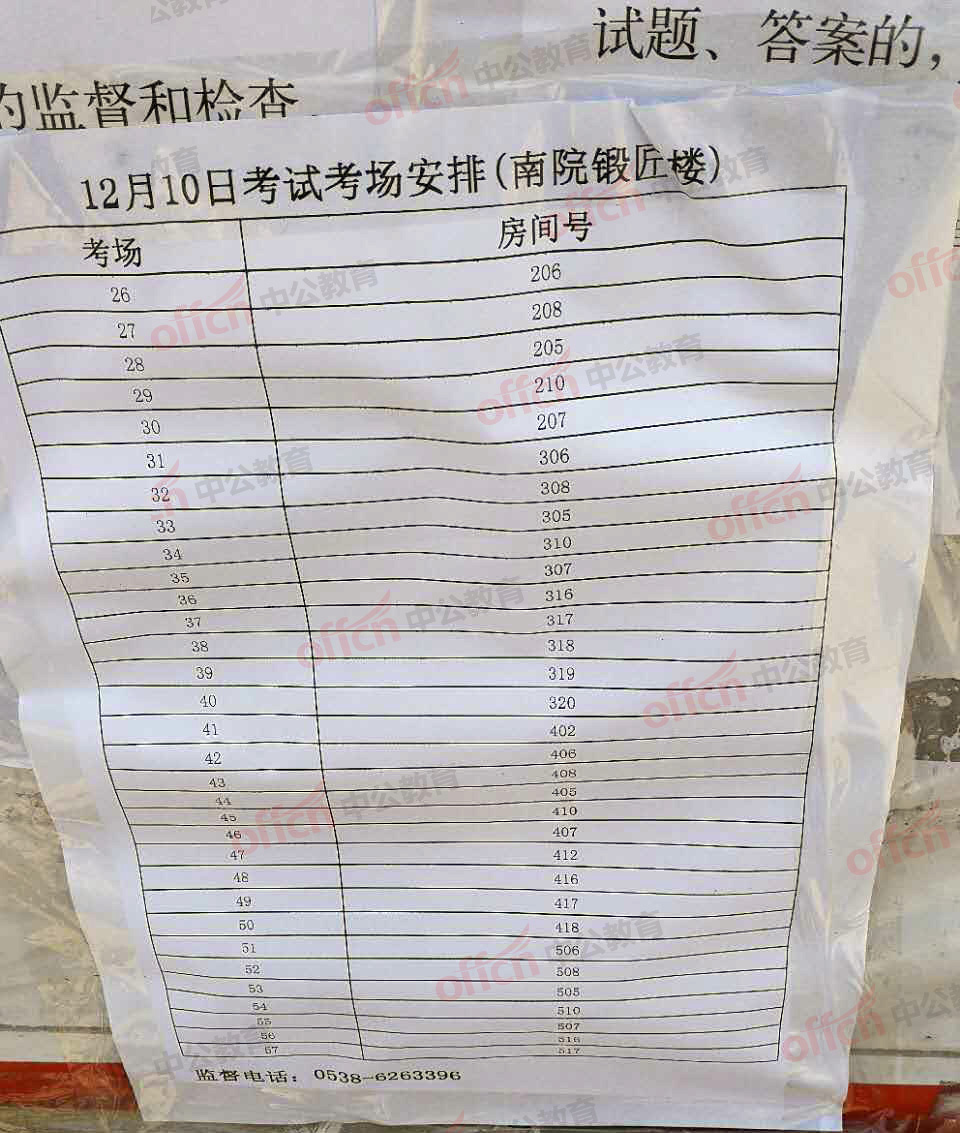 试题、答案的,
的监督和检查.
12月10日考试考场安排(南院锻匠楼)
考场 房间号
26 206
27 208
28 205
29 210
30 207
31 306
32 308
33 305
34 310
35 307
36 316
37 317
38 318
39 319
40 320
41 402
42 406
43 408
44 405
45 410
46 407
47 412
48 416
49 417
50 418
51 506
52 508
53 505
54 510
55 507
56 516
57 517
监督电话: 0538-6263396
offcn 中公教育